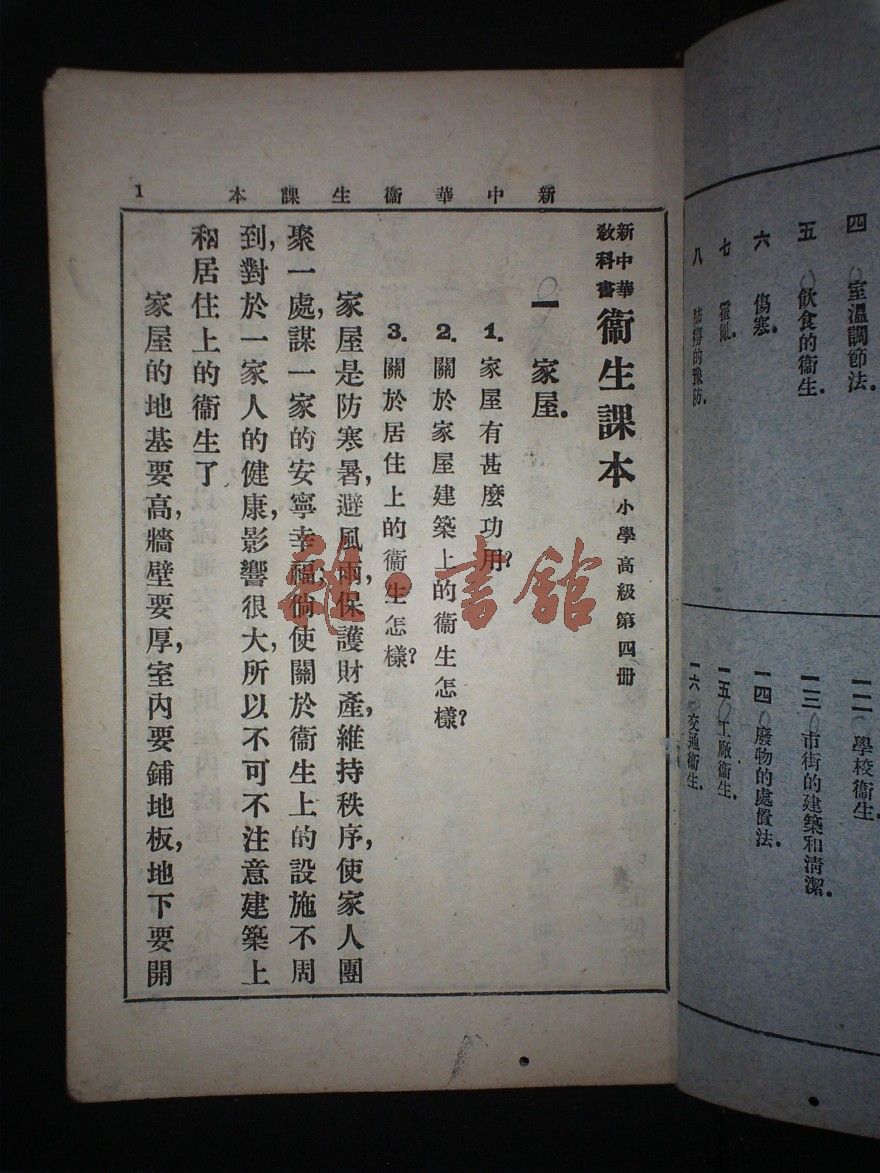 四　室溫調節法.
五　飲食的衞生.
六　傷寒.
七　霍亂.
八　肺癆的豫防.
一二　學校衞生.
一三　市街的建築和清潔.
一四　廢物的處置法.
一五　工廠衞生.
一六　交通衞生.
新中華衞生課本
1
新中華
教科書
衞生課本　小學高級第四册
一　家屋.
1.　家屋有甚麼功用?
2.　關於家屋建築上的衞生怎樣?
3.　關於居住上的衞生怎樣?
家屋是防寒暑,避風雨,保護財產,維持秩序,使家人團
聚一處,謀一家的安寧幸福,倘使關於衞生上的設施不周
到,對於一家人的健康,影響很大,所以不可不注意建築上
和居住上的衞生了
家屋的地基要高,牆壁要厚,室內要鋪地板,地下要開
雜·書館